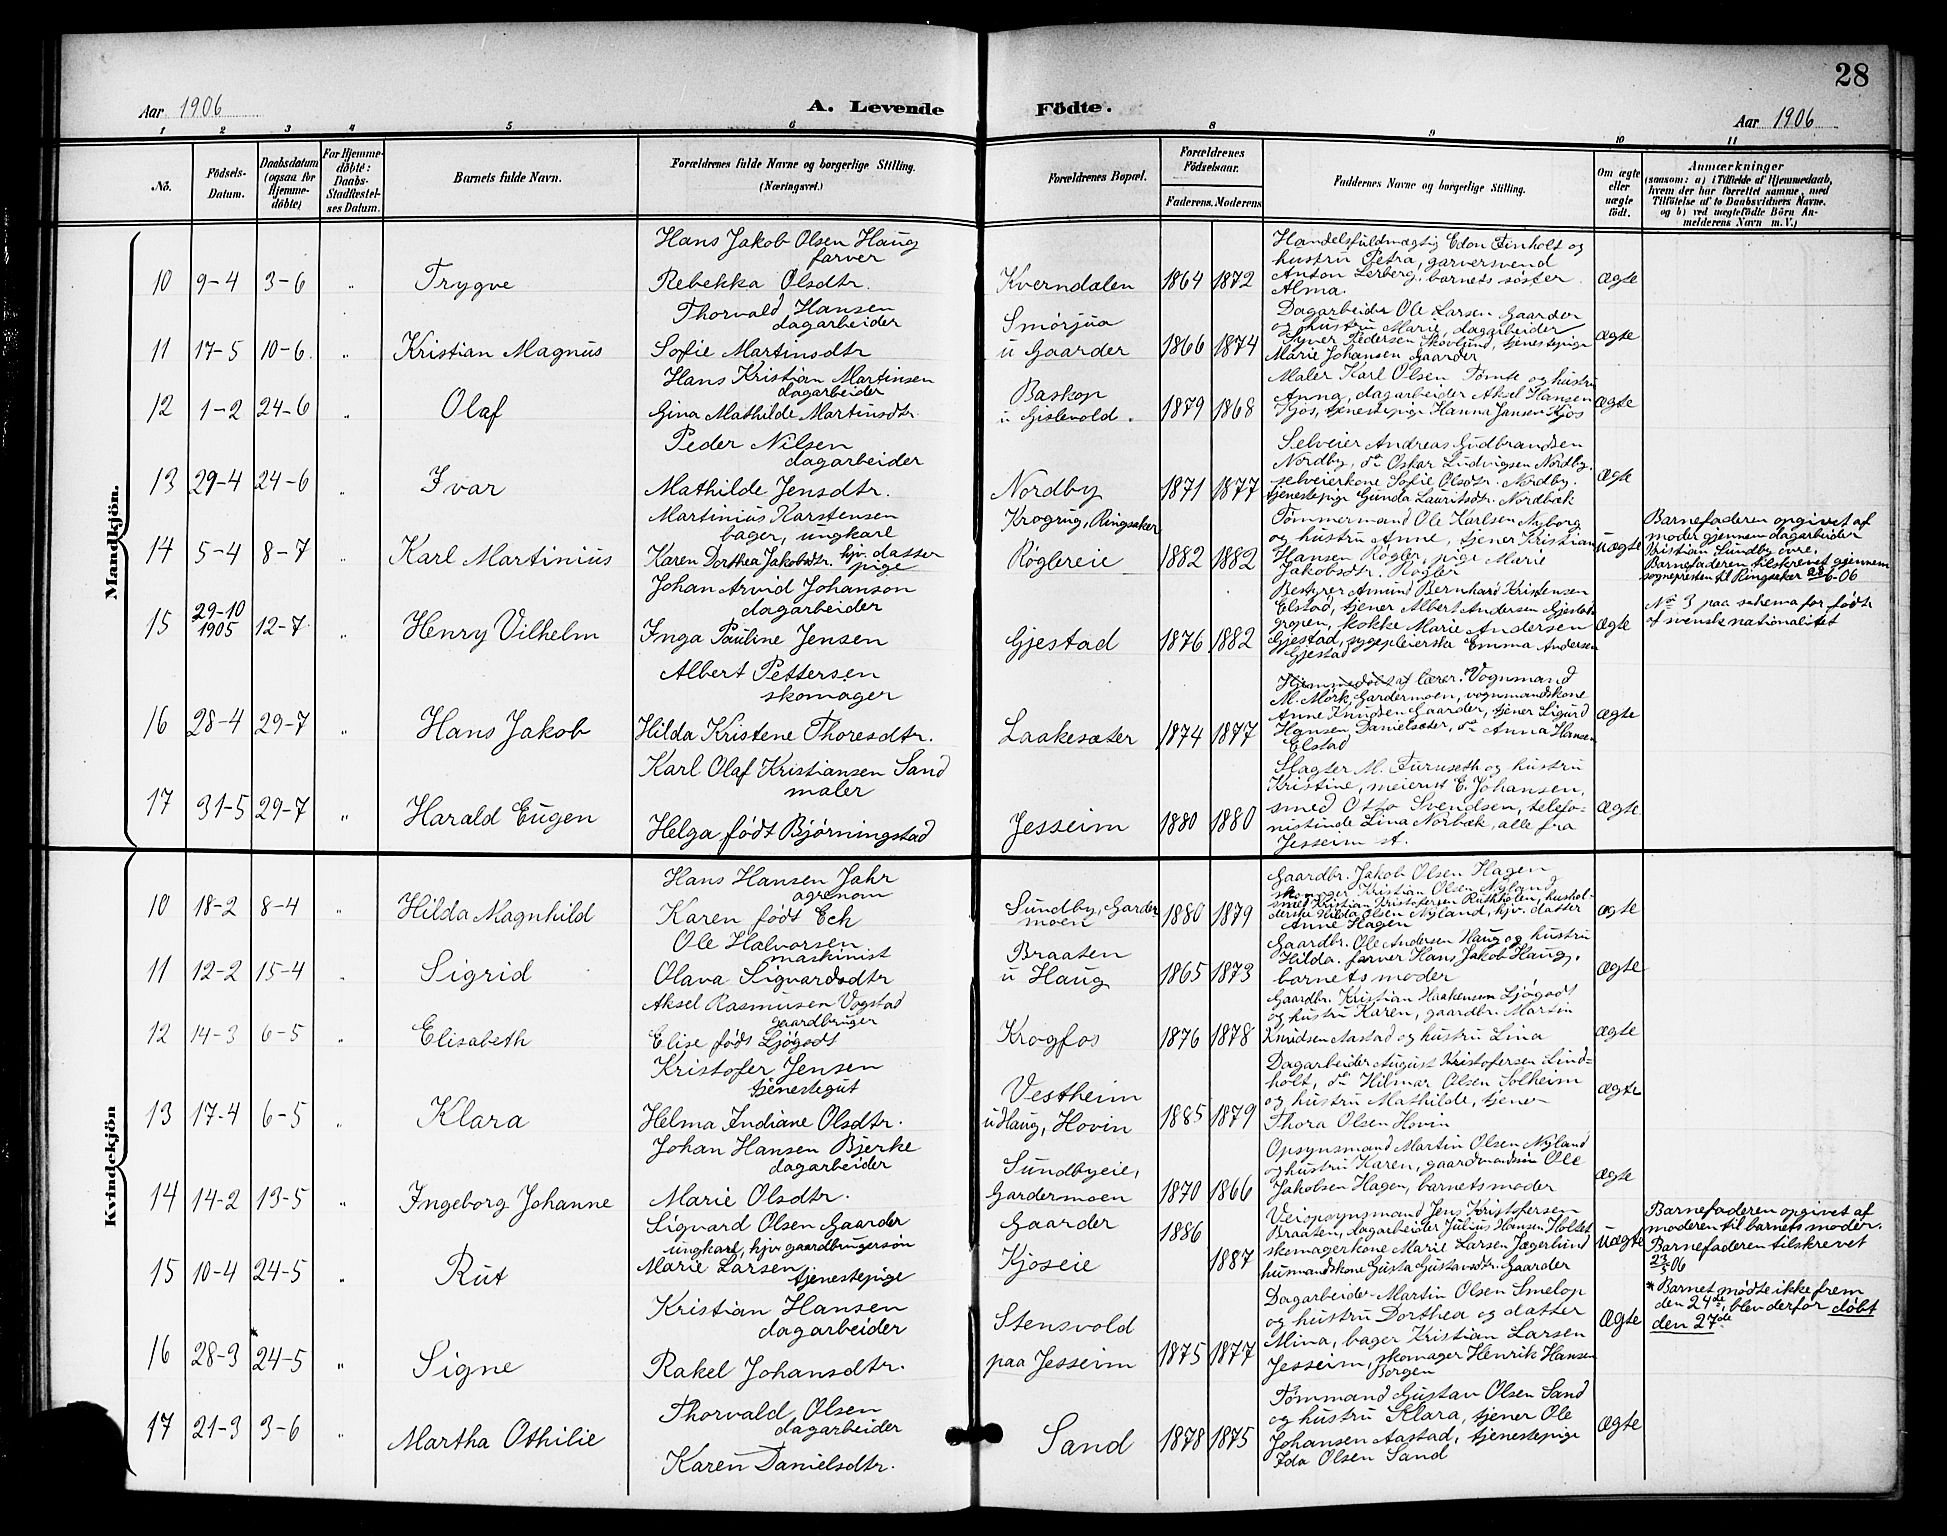 28
Aar 1906
A. Levende
Födte.
Aar 1906
1 2 3 4 5 6 8 9 10 11
No.
Födsels-
Datum.
Daabsdatum
(ogsaa for
Hjemme-
döbte)
For Hjemme-
döbte:
Daabs-
Stadfæstel-
ses Datum.
Barnets fulde Navn.
Forældrenes fulde Navne og borgerlige Stilling.
(Næringsvei.)
Forældrenes Bopæl.
Forældrenes
Födselsaar.
Faderens. Moderens
Faddernes Navne og borgerlige Stilling.
Om ægte
eller
uægte
födt.
Anmærkninger
(saasom: a) i Tilfælde af Hjemmedaab,
hvem der har forrettet samme, med
Tilföielse af to Daabsvidners Navne.
og b) ved uægtefödte Börn An-
melderens Navn m. V.)
Mandkjön.
10 9-4 3-6 " Trygve
Hans Jakob Olsen Haug
farver
Rebekka Olsdtr.
Kverndalen 1864 1872
Handelsfuldmægtig Edon Finholt og
hustru Petra, garversvend
Anton Lerberg, barnets søster
Alma.
Ægte
11 17-5 10-6. " Kristian Magnus
Thorvald Hansen
dagarbeider
Sofie Martinsdtr
Smørjua
u Gaarder 1866 1874
Dagarbeider Ole Larsen Gaarder
og hustru Marie, dagarbeider
Pedersen Skovlund, tjenestepige
Marie Johansen Gaarder
Ægte
12 1-2 24-6 " Olaf
Hans Kristian Martinsen
dagarbeider
Gina Mathilde Martinsdtr.
Baskop
u Gislevold. 1879 1868
Maler Karl Olsen Tomte og hustru
Anna, dagarbeider Aksel Hansen
Kjos, tjenestepige Hanna Jansen Kjos
Ægte
13 29-4 24-6 " Ivar
Peder Nilsen
dagarbeider
Mathilde Jensdtr.
Nordby 1871 1877
Selveier Andreas Gudbrandsen
Nordby, do Oskar Ludvigsen Nordby.
selveierkone Sofie Olsdtr. Nordby.
tjenestepige Gunda Lauritsdtr. Nordbæk
Ægte
14 5-4 8-7 " Karl Martinius
Martinius Karstensen
bager, ungkarl
Karen Dorthea Jakobsdtr. hjv. datter
pige
Krogrug, Ringsaker
Røglereie 1882 1882
Tømmermand Ole Karlsen Nyborg
og hustru Anne, tjener Kristian
Hansen Røgler, pige Marie
Jakobsdtr. Røgler
uægte
Barnefaderen opgivet af
moder gjennem dagarbeider
Kristian Sundby øvre.
Barnefaderen tilskrevet gjennem
sognepresten til Ringsaker 28/6-06
15 29-10
1905 12-7 " Henry Vilhelm
Johan Arvid Johanson
dagarbeider
Inga Pauline Jensen
Gjestad 1876 1882
Bestyrer Amund Bernhard Kristensen
Elstad, tjener Albert Andersen
kokke Marie Andersen
Gjestad, sygepleierske Emma Andersen
Gjestad
Ægte
No 3 paa schema for fødte
af svensk nationalitet
16 28-4 29-7 " Hans Jakob
Albert Pettersen
skomager
Hilda Kristene Thoresdtr.
Laakesæter 1874 1877
Hjemmedøbt af lærer. Vognmand
M. Mørk, Gardermoen, vognmandskone
Anne Knudsen Gaarder, tjener Sigurd
Hansen Danielsæter, do Anna Hansen
Elstad
Ægte
17 31-5 29-7 " Harald Eugen
Karl Olaf Kristiansen Sand
maler
Helga født Bjørningstad
Jesseim 1880 1880
Slagter M. Furuseth og hustru
Kristine, meierist E. Johansen,
smed Otto Svendsen, telefo-
nistinde Lina Norbæk, alle fra
Jesseim st.
Ægte.
Kvindekjön
10 18-2 8-4 " Hilda Magnhild
Hans Hansen Jahr
agronom
Karen født Eek
Sundby, Garder-
moen 1880 1879
Gaardbr. Jakob Olsen Hagen
skomager Kristian Olsen Nyland
smed Kristian Kristofersen Rukholen, hushol-
derske Hilda Olsen Nyland, hjv. datter
Anne Hagen
ægte
11 12-2 15-4 " Sigrid
Ole Halvorsen
maskinist
Olava Sigvardsdtr
Braaten
u Haug 1865 1873
Gaardbr. Ole Andersen Haug og hustru
Hilda. farver Hans Jakob Haug,
barnets moder
Ægte
12 14-3 6-5 " Elisabeth
Aksel Rasmusen Vogstad
gaardbruger
Elise født Ljøgodt
Krogfos 1876 1878
Gaardbr. Kristian Haakensen Ljøgodt
og hustru Karen, gaardbr. Martin
Knudsen Aastad og hustru Lina
Ægte
13 17-4 6-5 " Klara
Kristofer Jensen
tjenestegut
Helma Indiane Olsdtr.
Vestheim
u Haug, Hovin 1885 1879
Dagarbeider August Kristofersen Lind-
holt, do Hilmar Olsen Solheim
og hustru Mathilde, tjener
Thora Olsen Hovin
Ægte
14 14-2 13-5 " Ingeborg Johanne
Johan Hansen Bjerke
dagarbeider
Marie Olsdtr.
Sundbyeie,
Gardermoen 1870 1866
Opsynsmand Martin Olsen Nyland
og hustru Karen, gaardmandssøn Ole
Jakobsen Hagen, barnets moder
Ægte
15 10-4 24-5 " Rut
Sigvard Olsen Gaarder
ungkarl, hjv gaardbrugersøn
Marie Larsen
tjenestepige
Gaarder 1886
Kjoseie 1887
Veiopsynsmand Jens Kristofersen
Braaten, dagarbeider Julius Hansen Holtet
skomagerkone Marie Larsen Jægerlund
husmandskone Gusta Gustavsdtr. Gaarder
Uægte
Barnefaderen opgivet af
moderen til barnets moder.
Barnefaderen tilskrevet
23/5 06
16 28-3 24-5* " Signe
Kristian Hansen
dagarbeider
Rakel Johansdtr.
Stensvold
paa Jesseim 1875 1877
Dagarbeider Martin Olsen Smelop
og hustru Dorthea og datter
Mina, bager Kristian Larsen
Jesseim, skomager Henrik Hansen
Borgen
Ægte
* Barnet mødte ikke frem
den 24de, blev derfor døbt
den 27de
17 21-3 3-6 " Martha Othilie
Thorvald Olsen
dagarbeider
Karen Danielsdtr.
Sand 1878 1875
Tømmand Gustav Olsen Sand
og hustru Klara, tjener Ole
Johansen Aastad, tjenestepige
Ida Olsen Sand
Ægte